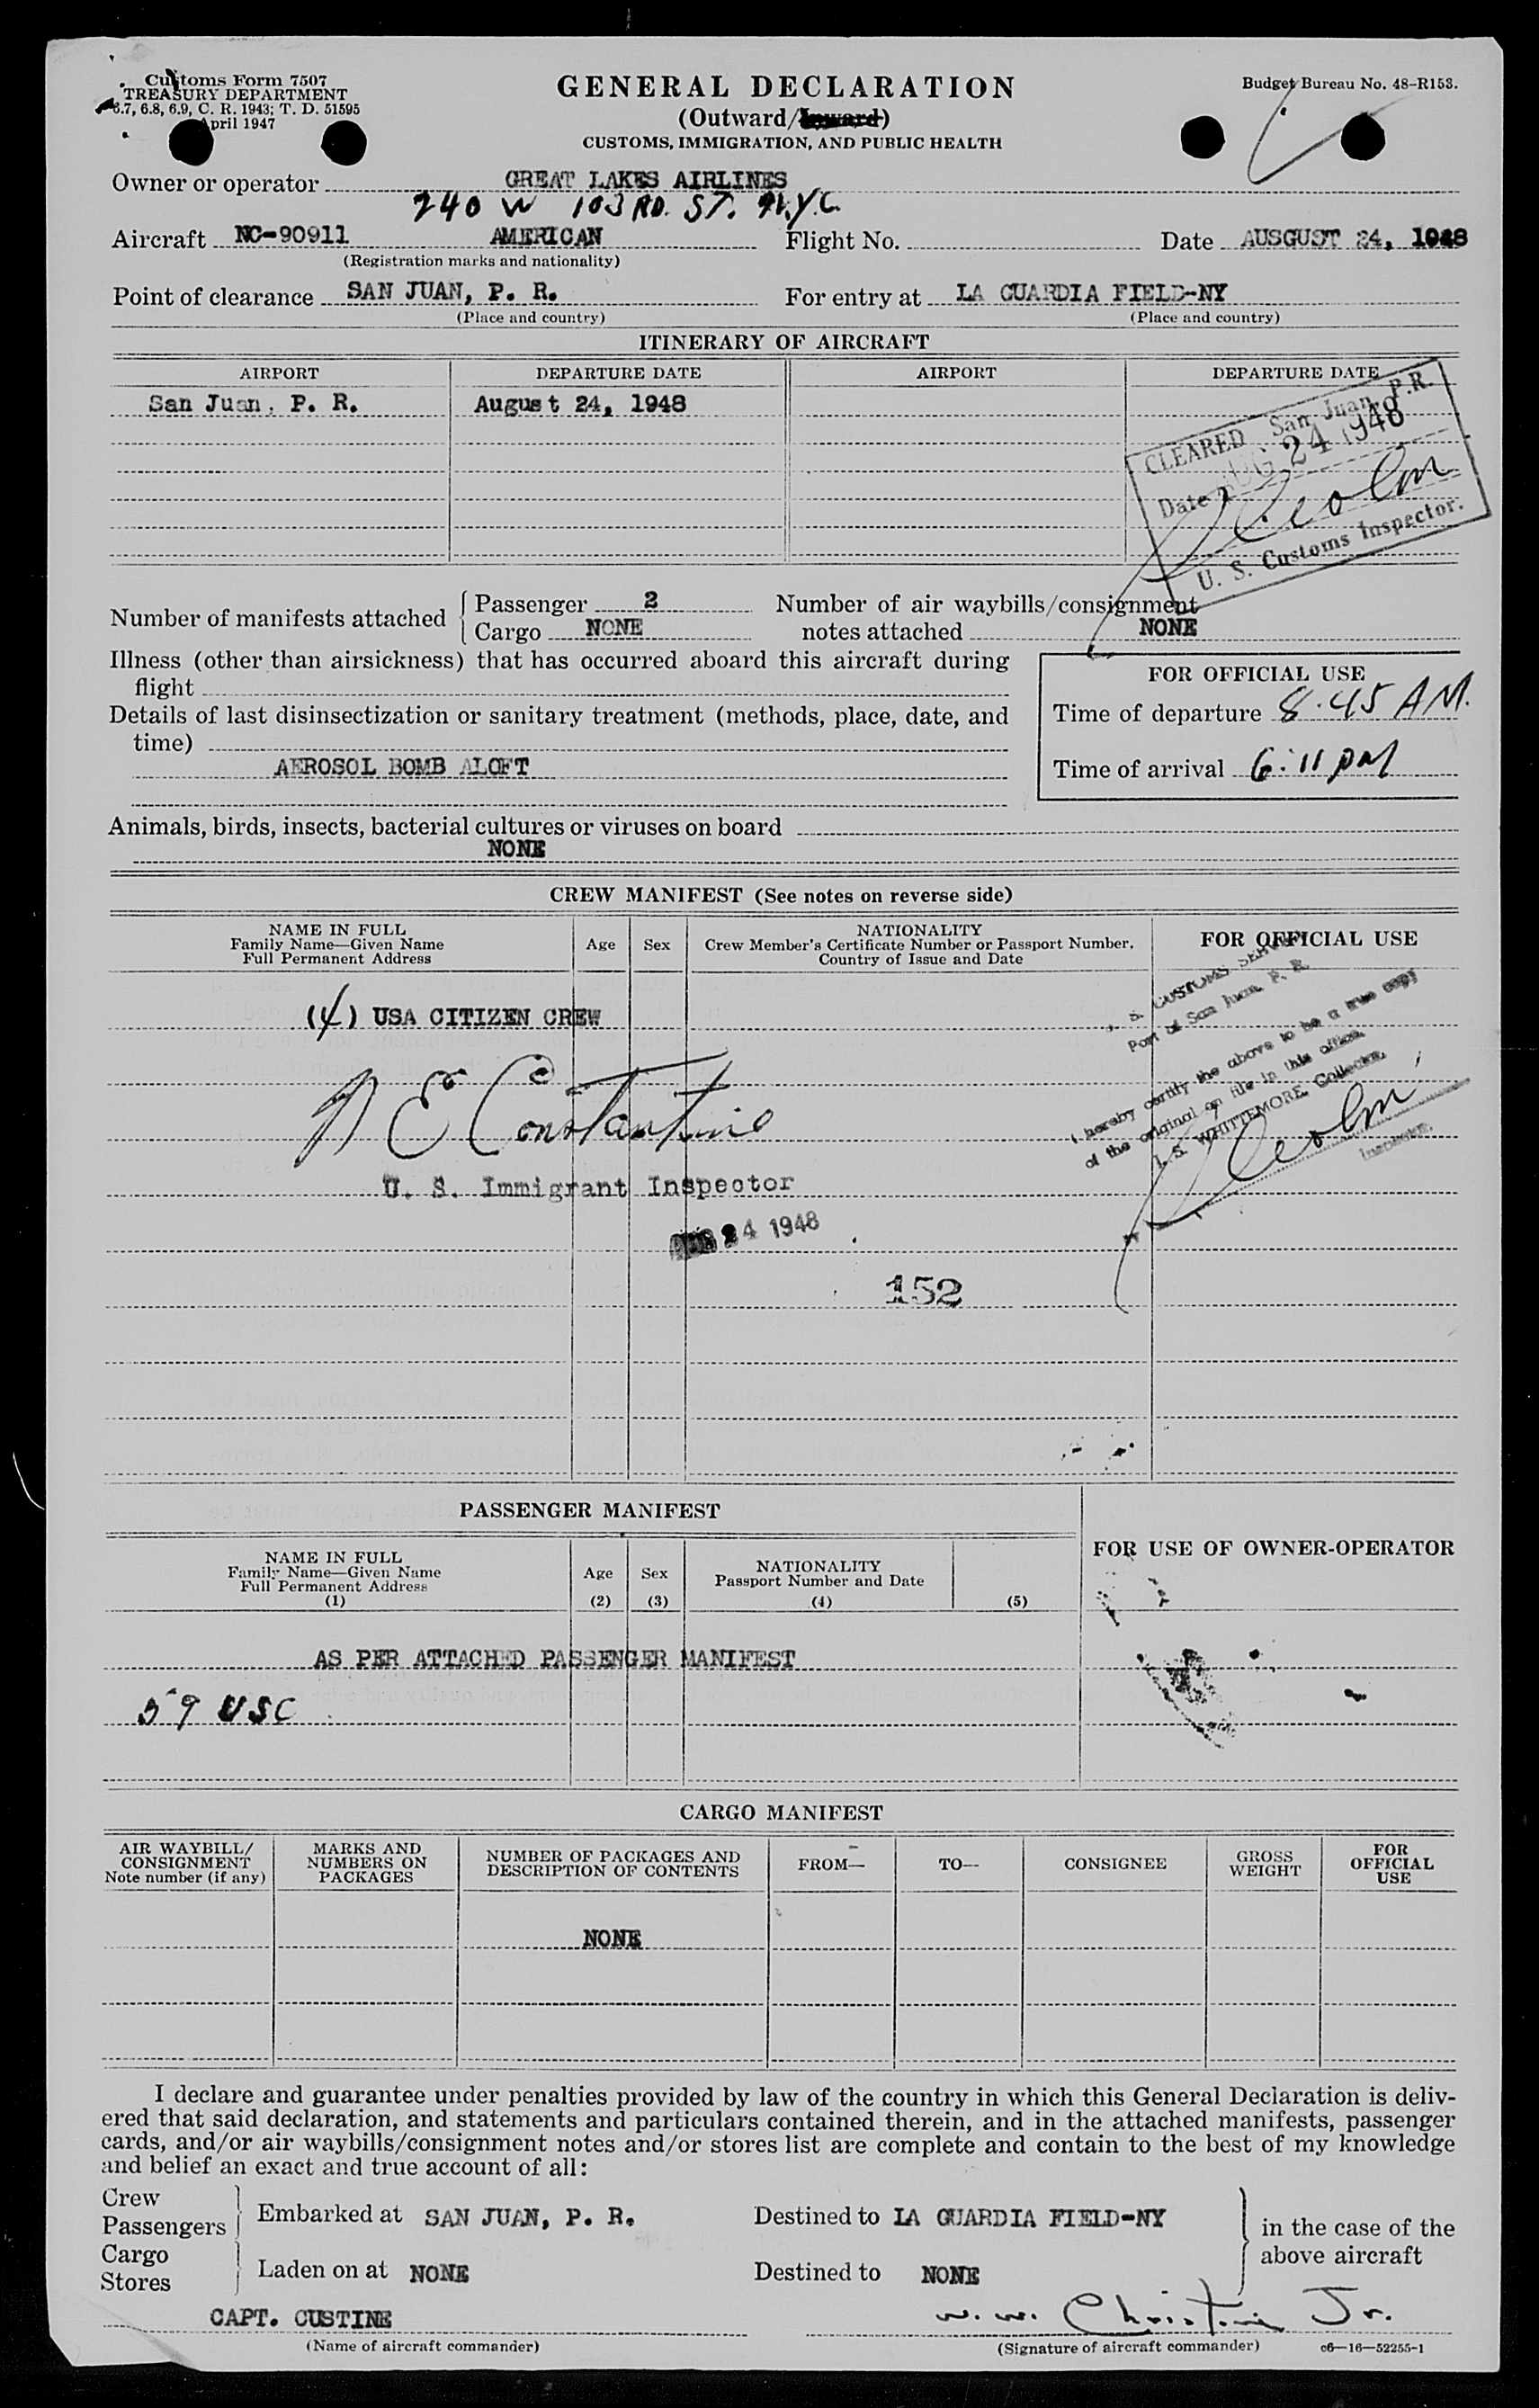 Customs Form 7507
TREASURY DEPARTMENT
6.7, 6.8, 6.9, C. R. 1943; T. D. 51595
April 1947
GENERAL DECLARATION
(Outward/Inward)
CUSTOMS, IMMIGRATION, AND PUBLIC HEALTH
Budget Bureau No. 48-R153.
Owner or operator GREAT LAKES AIRLINES
240 W 103RD. ST. N.Y.C.
Aircraft NC-90911 AMERICAN Flight No. Date AUSGUST 24, 1948
(Registration marks and nationality)
Point of clearance SAN JUAN, P. R. For entry at LA GUARDIA FIELD-NY
(Place and country) (Place and country)
ITINERARY OF AIRCRAFT
AIRPORT DEPARTURE DATE AIRPORT DEPARTURE DATE
San Juan, P. R. August 24, 1948
CLEARED San Juan, P.R.
Date AUG 24 1948
U. S. Customs Inspector.
Number of manifests attached Passenger 2 Number of air waybills/consignment
Cargo NONE notes attached NONE
Illness (other than airsickness) that has occurred aboard this aircraft during
flight
FOR OFFICIAL USE
Time of departure 8:45 AM.
Time of arrival 6:11 PM
Details of last disinsectization or sanitary treatment (methods, place, date, and
time)
AEROSOL BOMB ALOFT
Animals, birds, insects, bacterial cultures or viruses on board
NONE
CREW MANIFEST (See notes on reverse side)
NAME IN FULL
Family Name—Given Name
Full Permanent Address
Age Sex
NATIONALITY
Crew Member's Certificate Number or Passport Number.
Country of Issue and Date
FOR OFFICIAL USE
(4) USA CITIZEN CREW
U. S. CUSTOMS SERVICE
Port of San Juan, P. R.
I hereby certify the above to be a true copy
of the original on file in this office.
I. S. WHITTEMORE, Collector,
Inspector.
N E Constantine
U. S. Immigrant Inspector
AUG 24 1948
152
PASSENGER MANIFEST
FOR USE OF OWNER-OPERATOR
NAME IN FULL
Family Name—Given Name
Full Permanent Address
(1)
Age
(2)
Sex
(3)
NATIONALITY
Passport Number and Date
(4) (5)
AS PER ATTACHED PASSENGER MANIFEST
59 USC
CARGO MANIFEST
AIR WAYBILL/
CONSIGNMENT
Note number (if any)
MARKS AND
NUMBERS ON
PACKAGES
NUMBER OF PACKAGES AND
DESCRIPTION OF CONTENTS
FROM— TO— CONSIGNEE
GROSS
WEIGHT
FOR
OFFICIAL
USE
NONE
I declare and guarantee under penalties provided by law of the country in which this General Declaration is deliv-
ered that said declaration, and statements and particulars contained therein, and in the attached manifests, passenger
cards, and/or air waybills/consignment notes and/or stores list are complete and contain to the best of my knowledge
and belief an exact and true account of all:
Crew
Passengers
Embarked at SAN JUAN, P. R. Destined to LA GUARDIA FIELD-NY
Cargo
Stores
Laden on at NONE Destined to NONE
in the case of the
above aircraft
CAPT. CUSTINE W. W. Christine Jr.
(Name of aircraft commander) (Signature of aircraft commander) c6—16—52255-1